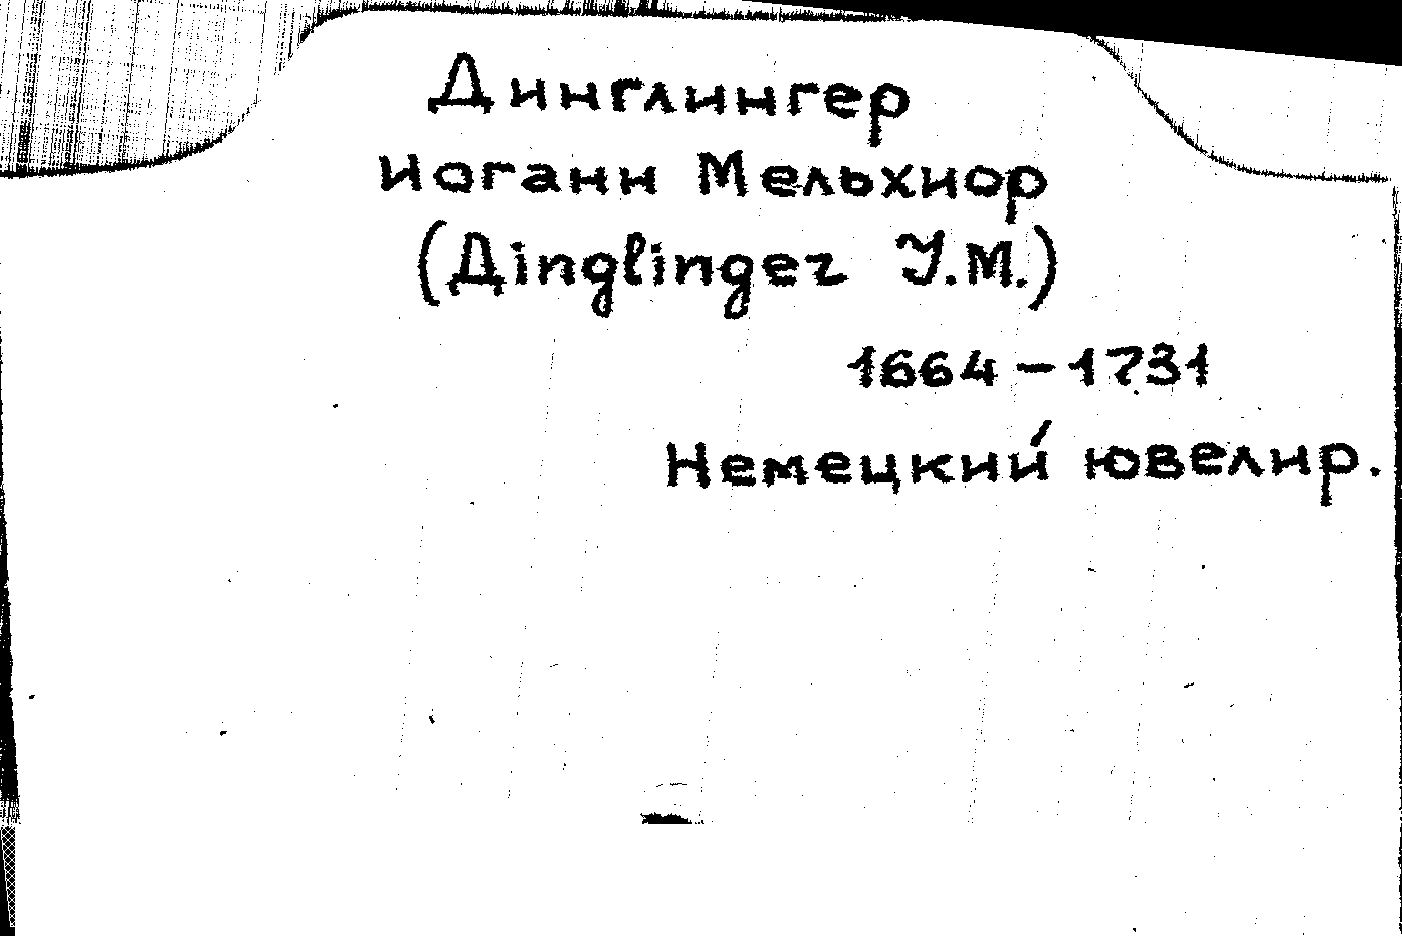 Динглингер
Иоганн Мельхиор
(Дinglinger J.M.)
1664 – 1731
Немецкий ювелир.